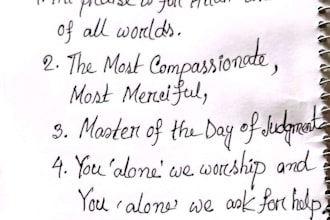 of all worlds.
2. The Most Compassionate,
Most Merciful,
3. Master of the Day of Judgment
4. You 'alone' we worship and
You 'alone' we ask for help